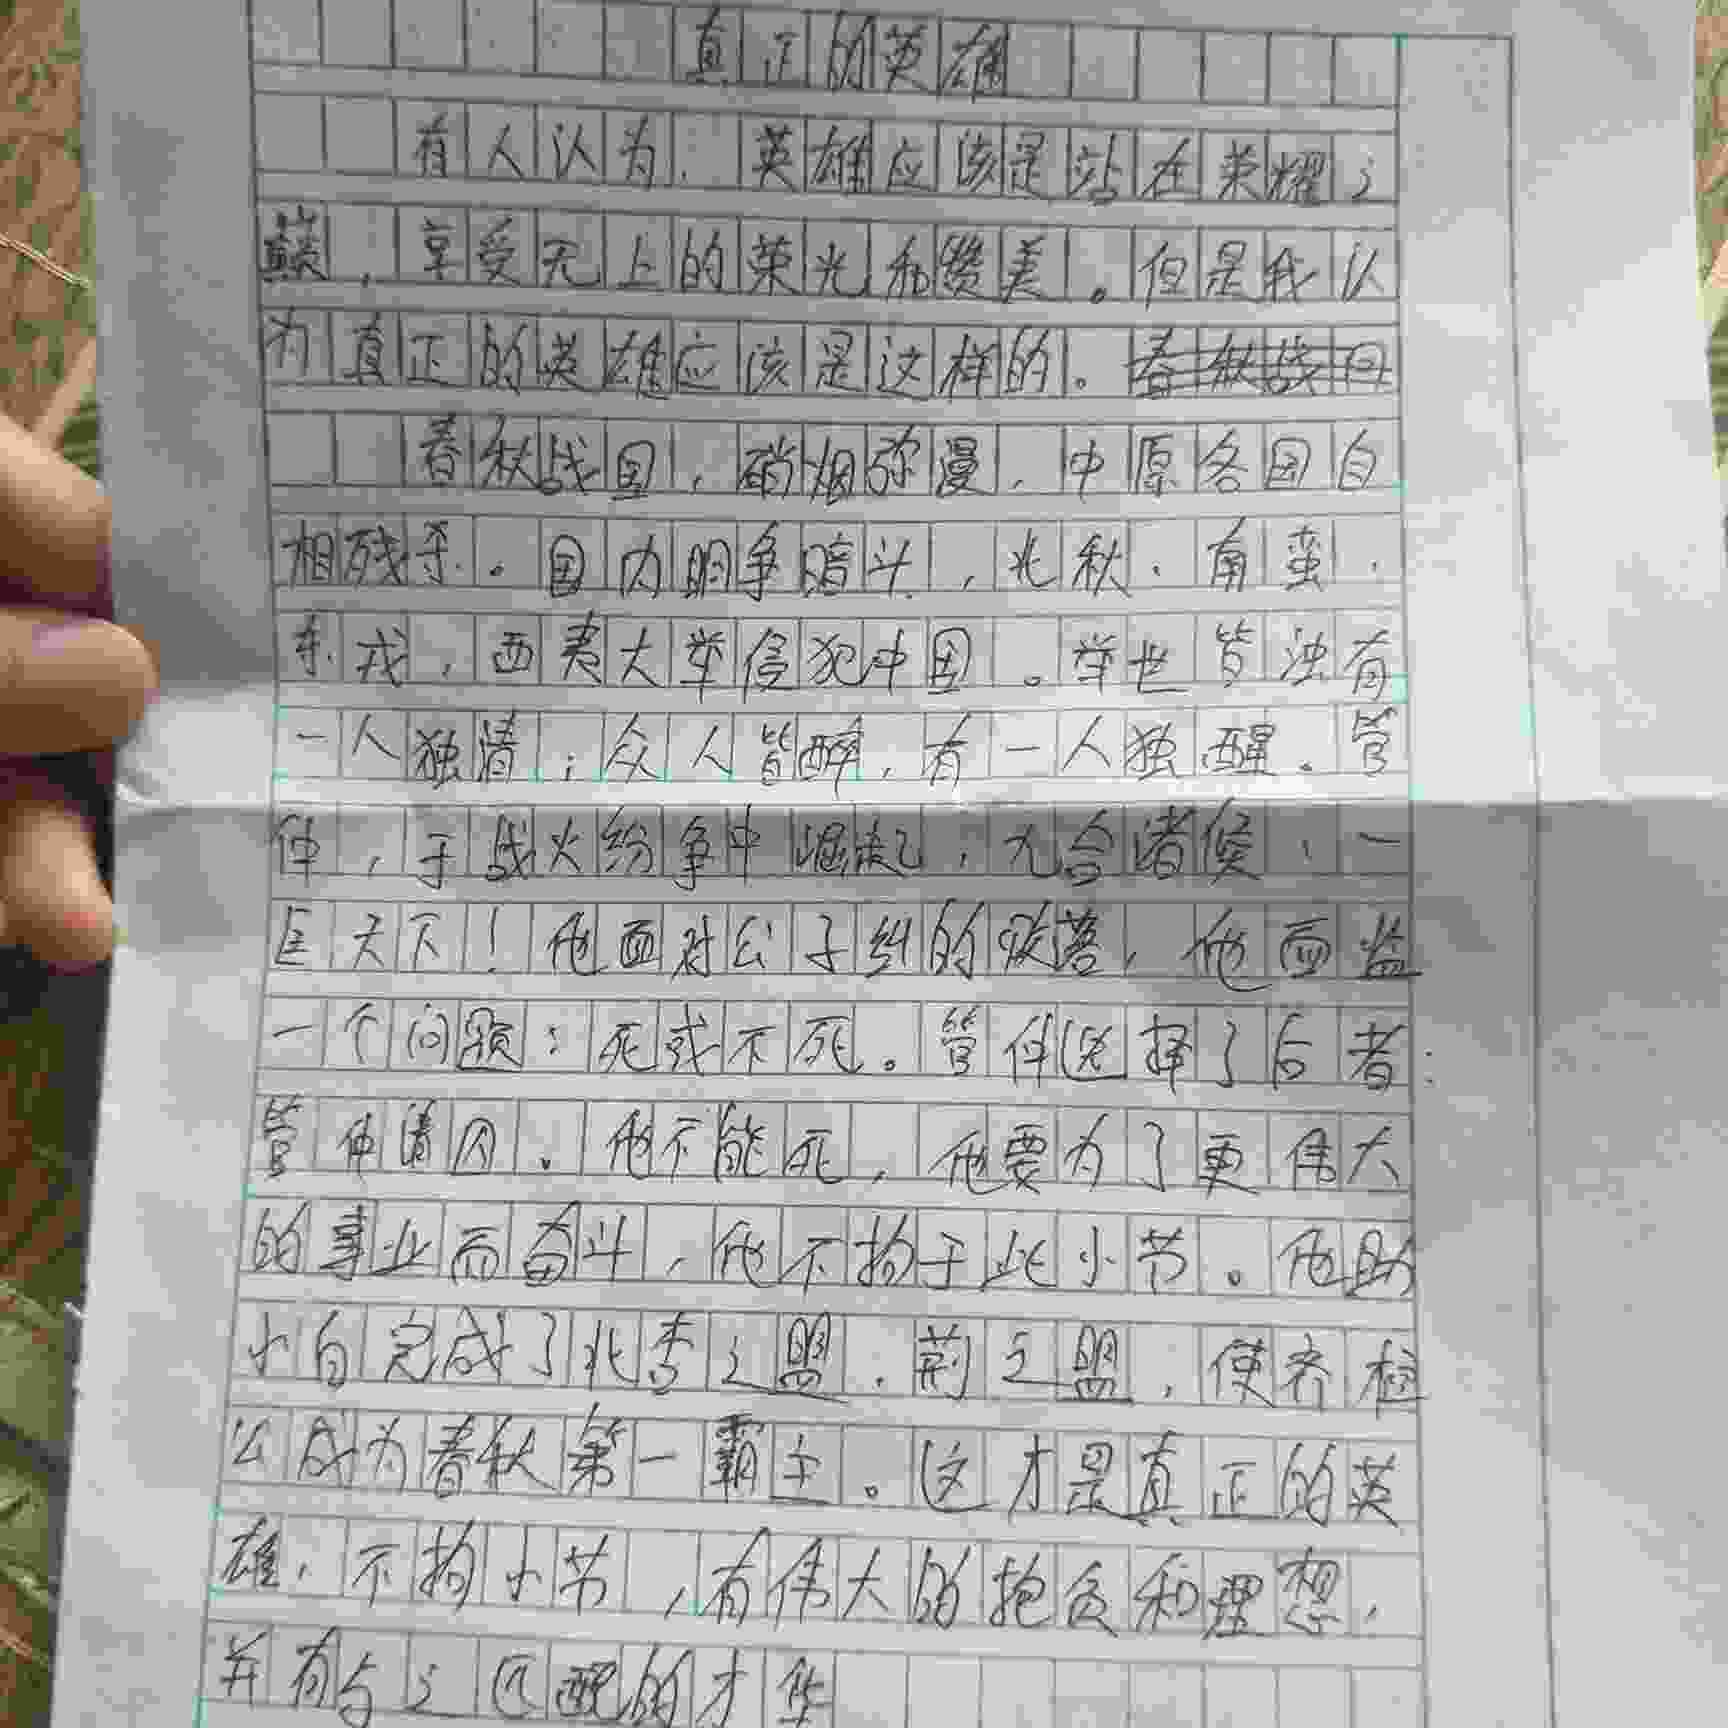 真正的英雄
有人认为，英雄应该是站在荣耀之
巅，享受无上的荣光和赞美。但是我认
为真正的英雄应该是这样的。春秋战国
春秋战国，硝烟弥漫，中原各国自
相残杀。国内明争暗斗，北秋、南蛮、
东戎，西夷大举侵犯中国。举世皆浊有
一人独清；众人皆醉，有一人独醒。管
仲，于战火纷争中崛起，九合诸侯，一
匡天下！他面对公子纠的败落，他面监
一个问题：死或不死。管仲选择了后者：
管仲请囚。他不能死，他要为了更伟大
的事业而奋斗，他不拘于此小节。他助
小白完成了北杏之盟，荊之盟，使齐桓
公成为春秋第一霸主。这才是真正的英
雄，不拘小节，有伟大的抱负和理想，
并有与之匹配的才华